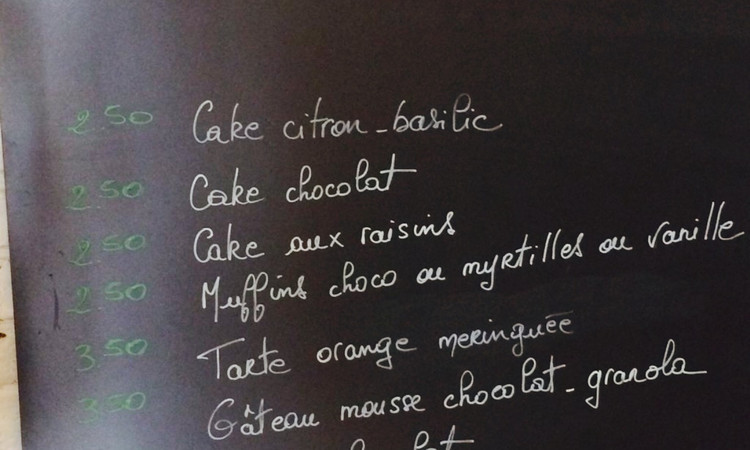 2.50 Cake citron-basilic
2.50 Cake chocolat
2.50 Cake aux raisins
2.50 Muffins choco ou myrtilles ou vanille
3.50 Tarte orange meringuée
3.50 Gâteau mousse chocolat-granola